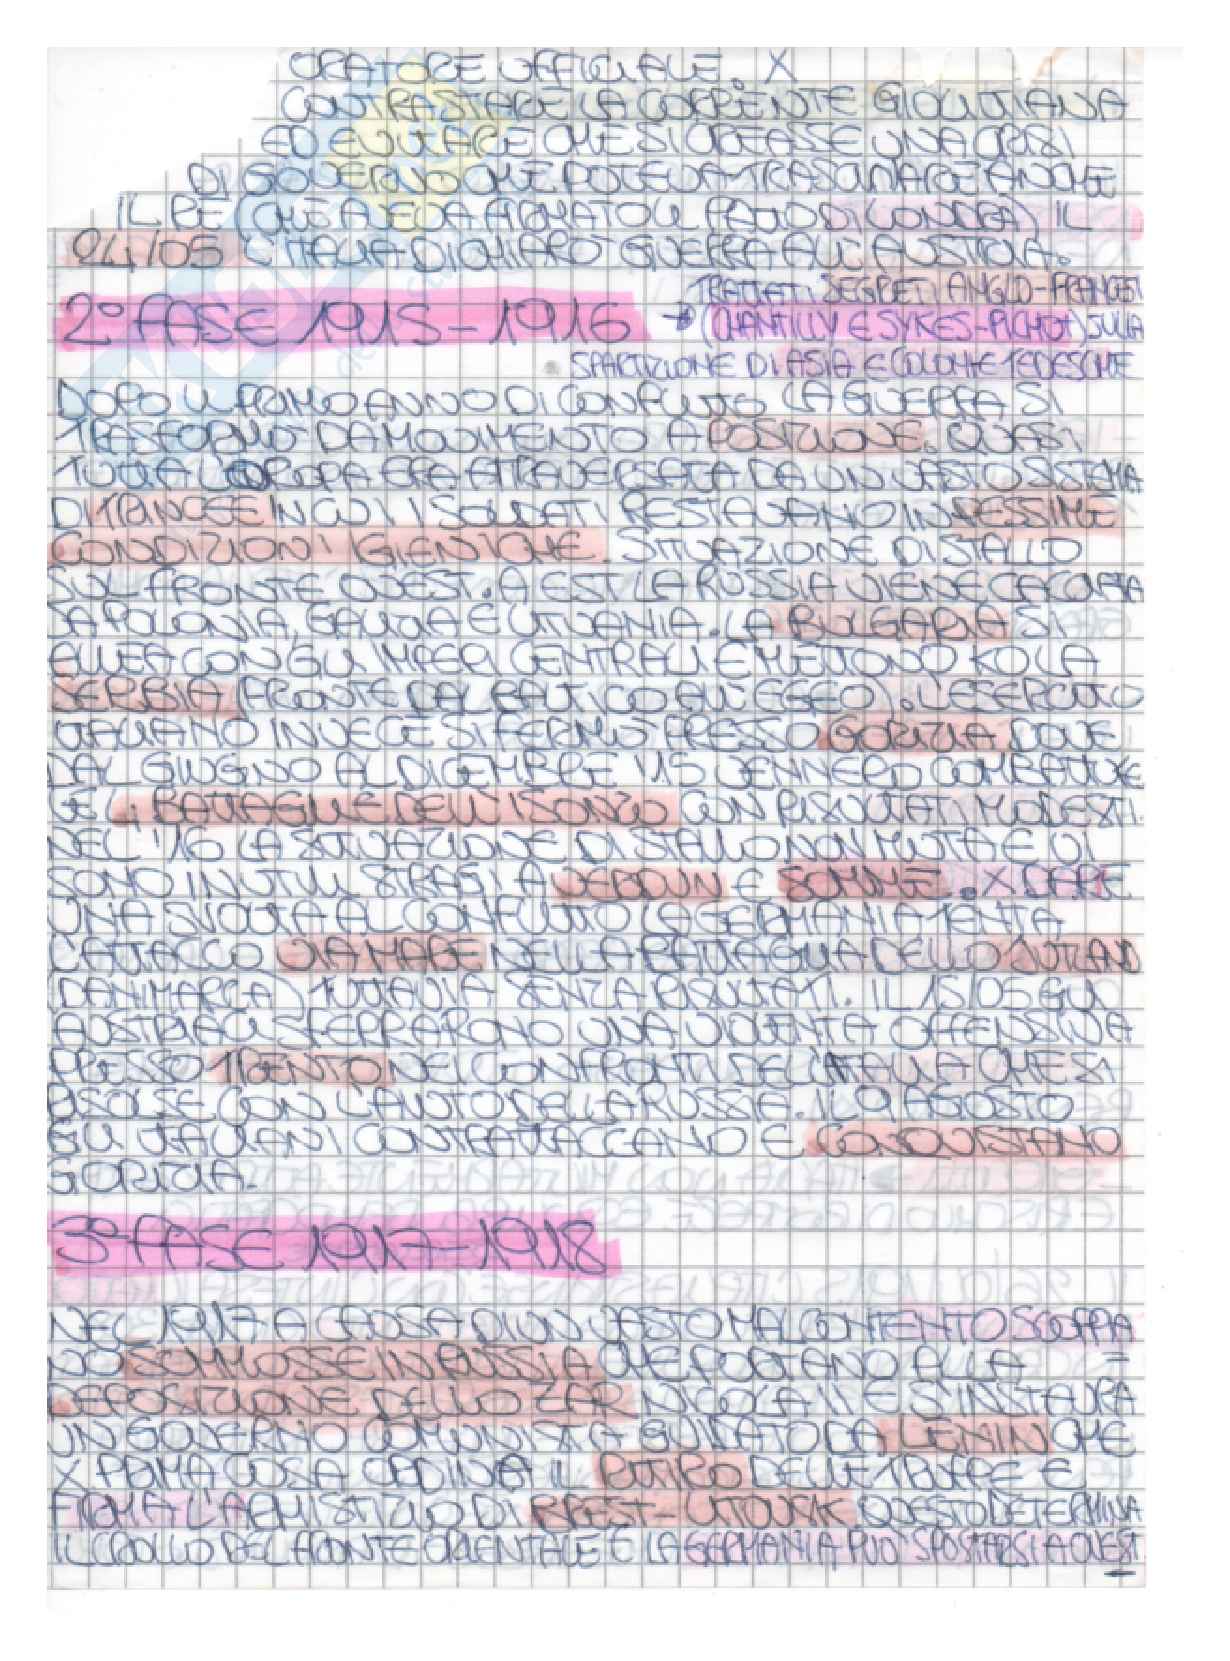 ORATORE UFFICIALE. X
CONTRASTARE LA CORRENTE GIOLITTIANA
ED EVITARE CHE SI CREASSE UNA CRISI
DI GOVERNO CHE POTEVA TRASCINARE ANCHE
IL RE (CHE AVEVA FIRMATO IL PATTO DI LONDRA) IL
24/05 L'ITALIA DICHIARO' GUERRA ALL'AUSTRIA.
TRATTATI SEGRETI ANGLO-FRANCESI
2° FASE 1915-1916 → (CHANTILLY E SYKES-PICHOT) SULLA
SPARTIZIONE DI ASIA E COLONIE TEDESCHE
DOPO IL PRIMO ANNO DI CONFLITTO LA GUERRA SI
TRASFORMO' DA MOVIMENTO A POSIZIONE. QUASI
TUTTA L'EUROPA ERA ATTRAVERSATA DA UN VASTO SISTEMA
DI TRINCEE IN CUI I SOLDATI RESTAVANO IN PESSIME
CONDIZIONI IGIENICHE. SITUAZIONE DI STALLO
SUL FRONTE OVEST. A EST LA RUSSIA VIENE CACCIATA
DA POLONIA, GALIZIA E LITUANIA. LA BULGARIA SI
ALLEA CON GLI IMPERI CENTRALI E METTONO KO LA
SERBIA (FRONTE DAL BALTICO ALL'EGEO). L'ESERCITO
ITALIANO INVECE SI FERMO' PRESSO GORIZIA DOVE
DAL GIUGNO AL DICEMBRE '15 VENNERO COMBATTUTE
LE 4 BATTAGLIE DELL'ISONZO CON RISULTATI MODESTI.
NEL '16 LA SITUAZIONE DI STALLO NON MUTA E VI
SONO INUTILI STRAGI A VERDUN E SOMME. X DARE
UNA SVOLTA AL CONFLITTO LA GERMANIA TENTA
L'ATTACCO VIA MARE NELLA BATTAGLIA DELLO JUTLAND
(DANIMARCA) TUTTAVIA SENZA RISULTATI. IL 15/05 GLI
AUSTRIACI SFERRARONO UNA VIOLENTA OFFENSIVA
PRESSO TRENTO NEI CONFRONTI DELL'ITALIA CHE SI
RISOLSE CON L'AIUTO DELLA RUSSIA. IL 9 AGOSTO
GLI ITALIANI CONTRATTACCANO E CONQUISTANO
GORIZIA.
3° FASE 1917-1918
NEL 1917 A CAUSA DI UN VASTO MALCONTENTO SCOPPIA
NO SOMMOSSE IN RUSSIA CHE PORTANO ALLA =
DEPOSIZIONE DELLO ZAR NICOLA II E S'INSTAURA
UN GOVERNO COMUNISTA GUIDATO DA LENIN CHE
X PRIMA COSA ORDINA IL RITIRO DELLE TRUPPE E
FIRMA L'ARMISTIZIO DI BREST-LITOVSK QUESTO DETERMINA
IL CROLLO DEL FRONTE ORIENTALE E LA GERMANIA PUO' SPOSTARSI A OVEST